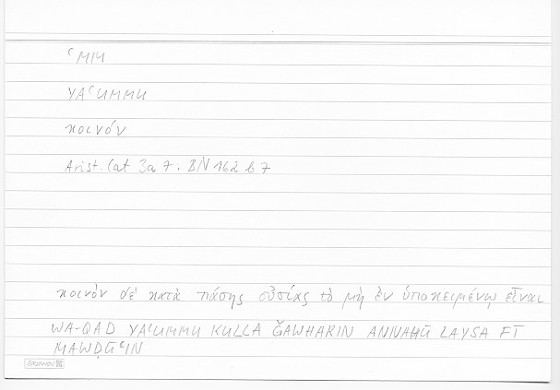 ʿMM
YAʿUMMU
κοινόν
Arist. Cat 3a 7. BN 162 b 7
κοινὸν δὲ κατὰ πάσης οὐσίας τὸ μὴ ἐν ὑποκειμένῳ εἶναι
WA-QAD YAʿUMMU KULLA ǦAWHARIN ANNAHŪ LAYSA FĪ
MAWḌŪʿIN
BRUNNEN